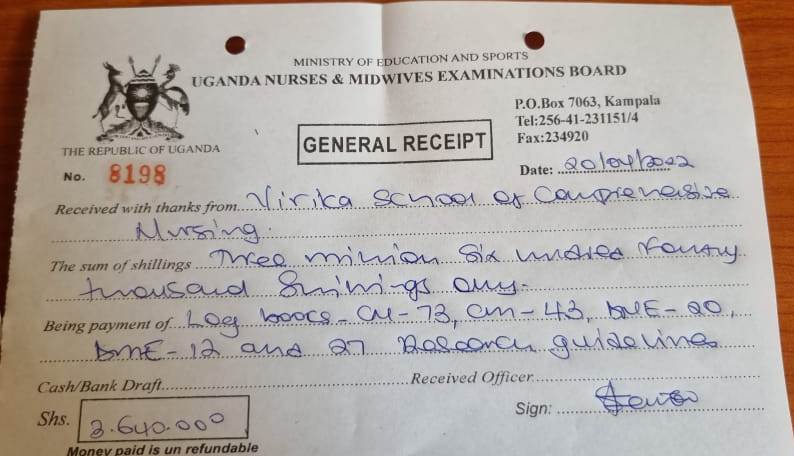 MINISTRY OF EDUCATION AND SPORTS
UGANDA NURSES & MIDWIVES EXAMINATIONS BOARD
P.O.Box 7063, Kampala
Tel:256-41-231151/4
Fax:234920
THE REPUBLIC OF UGANDA
GENERAL RECEIPT
No. 8198
Date: 20/04/2022
Received with thanks from Virika School of Comprehensive
Nursing.
The sum of shillings Three million Six hundred Fourty
thousand Shillings only.
Being payment of Log books - CN - 73, CM - 43, DNE - 20,
DME - 12 and 27 Research guidelines
Cash/Bank Draft
Received Officer
Shs. 3.640.000
Sign:
Money paid is un refundable